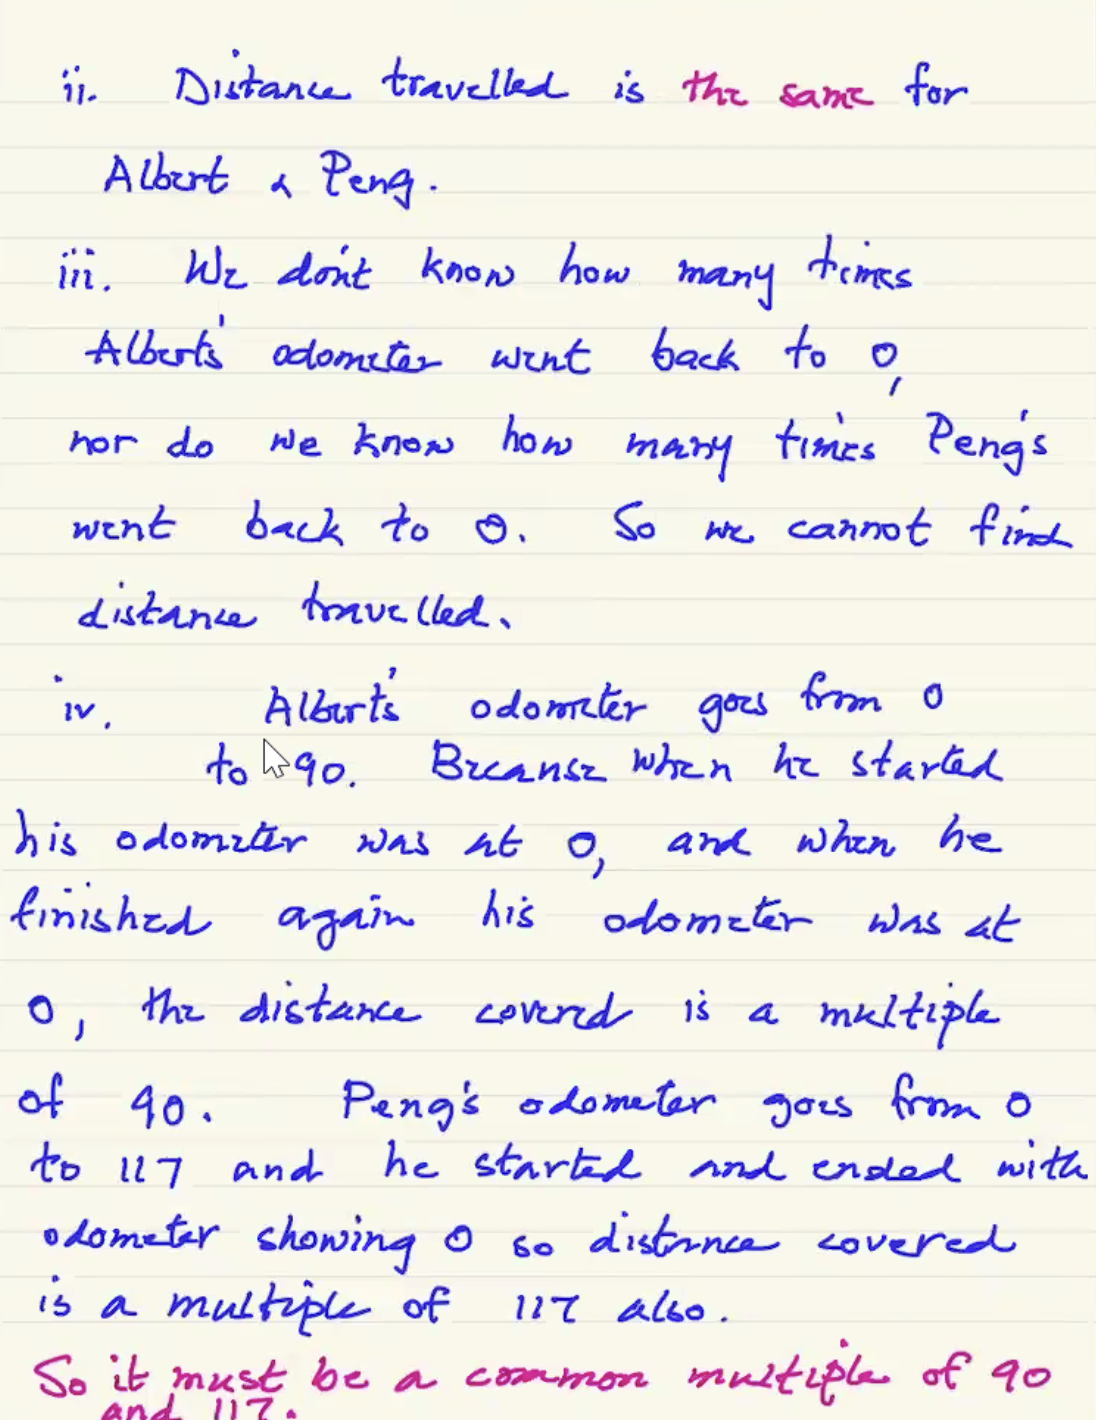 ii. Distance travelled is the same for
Albert & Peng.
iii. We don't know how many times
Albert's odometer went back to 0,
nor do we know how many times Peng's
went back to 0. So we cannot find
distance travelled.
iv. Albert's odometer goes from 0
to 90. Because when he started
his odometer was at 0, and when he
finished again his odometer was at
0, the distance covered is a multiple
of 90. Peng's odometer goes from 0
to 117 and he started and ended with
odometer showing 0 so distance covered
is a multiple of 117 also.
So it must be a common multiple of 90
and 117.